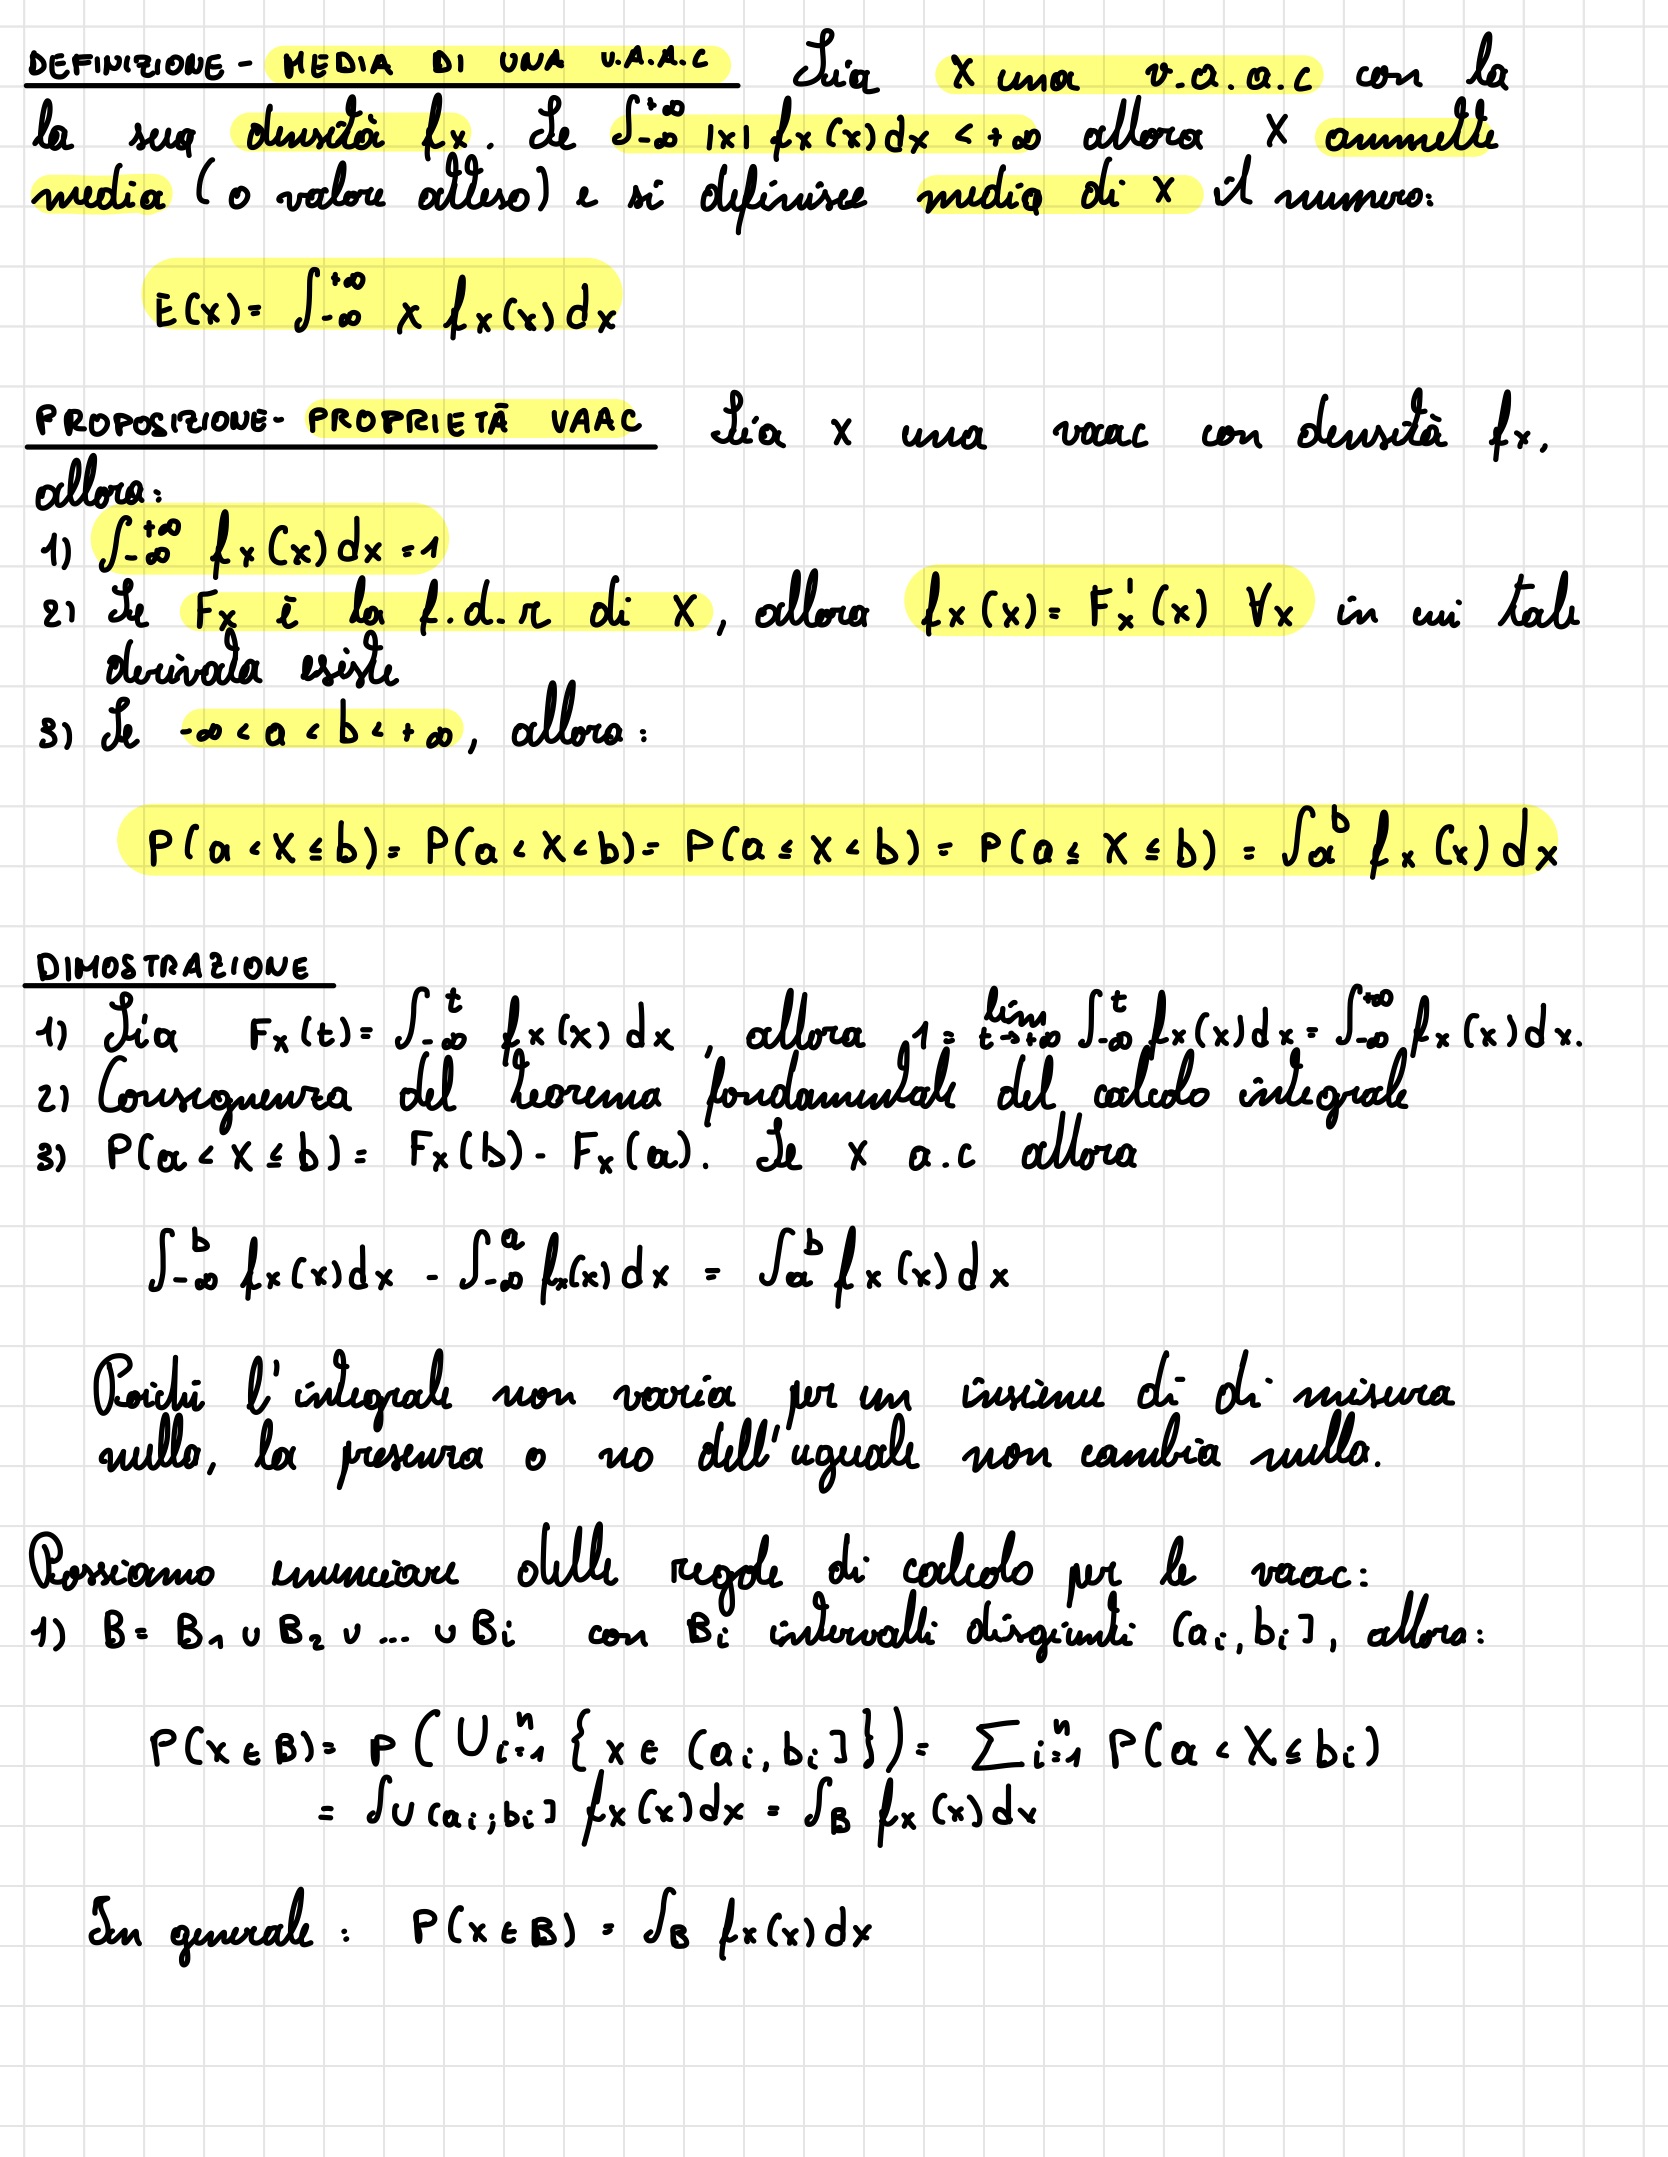 DEFINIZIONE - MEDIA DI UNA V.A.A.C Sia X una v.a.a.c con la
la sua densità fx. Se ∫-∞^+∞ |x| fx(x)dx < +∞ allora X ammette
media (o valore atteso) e si definisce media di X il numero:
E(x) = ∫-∞^+∞ x fx(x)dx
PROPOSIZIONE - PROPRIETÀ VAAC Sia X una vaac con densità fx,
allora:
1) ∫-∞^+∞ fx(x)dx = 1
2) Se Fx è la f.d.r di X, allora fx(x) = Fx'(x) ∀x in cui tale
derivata esiste
3) Se -∞ < a < b < +∞, allora:
P(a < X ≤ b) = P(a < X < b) = P(a ≤ X < b) = P(a ≤ X ≤ b) = ∫a^b fx(x)dx
DIMOSTRAZIONE
1) Sia Fx(t) = ∫-∞^t fx(x)dx, allora 1 = lim t→+∞ ∫-∞^t fx(x)dx = ∫-∞^+∞ fx(x)dx.
2) Conseguenza del teorema fondamentale del calcolo integrale
3) P(a < X ≤ b) = Fx(b) - Fx(a). Se X a.c allora
∫-∞^b fx(x)dx - ∫-∞^a fx(x)dx = ∫a^b fx(x)dx
Poiché l'integrale non varia per un insieme di di misura
nulla, la presenza o no dell'uguale non cambia nulla.
Possiamo enunciare delle regole di calcolo per le vaac:
1) B = B1 ∪ B2 ∪ ... ∪ Bi con Bi intervalli disgiunti (ai, bi], allora:
P(x ∈ B) = P(∪i=1^n {x ∈ (ai, bi]}) = ∑i=1^n P(a < X ≤ bi)
= ∫∪(ai; bi] fx(x)dx = ∫B fx(x)dx
In generale : P(x ∈ B) = ∫B fx(x)dx